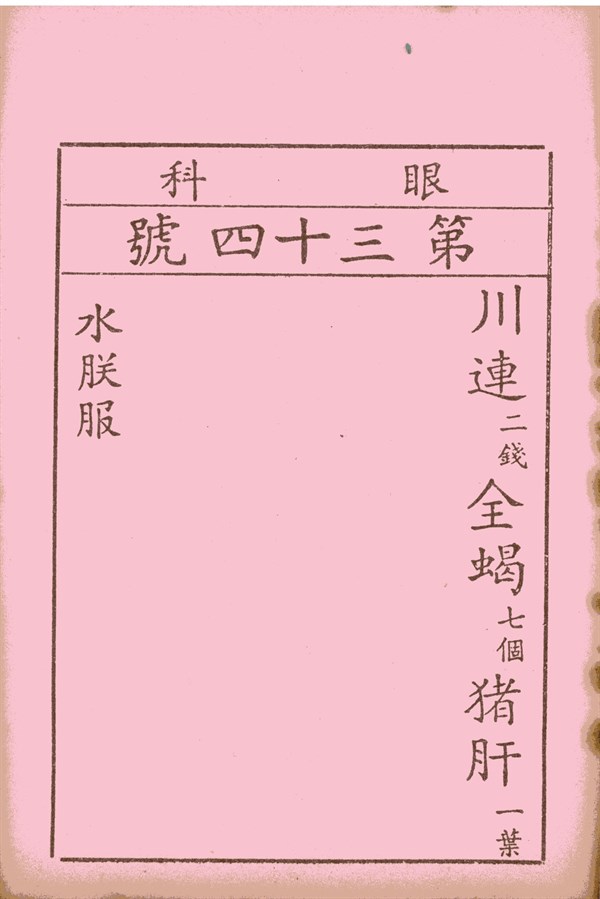 眼科
第三十四號
川連二錢全蝎七個猪肝一葉
水朕服